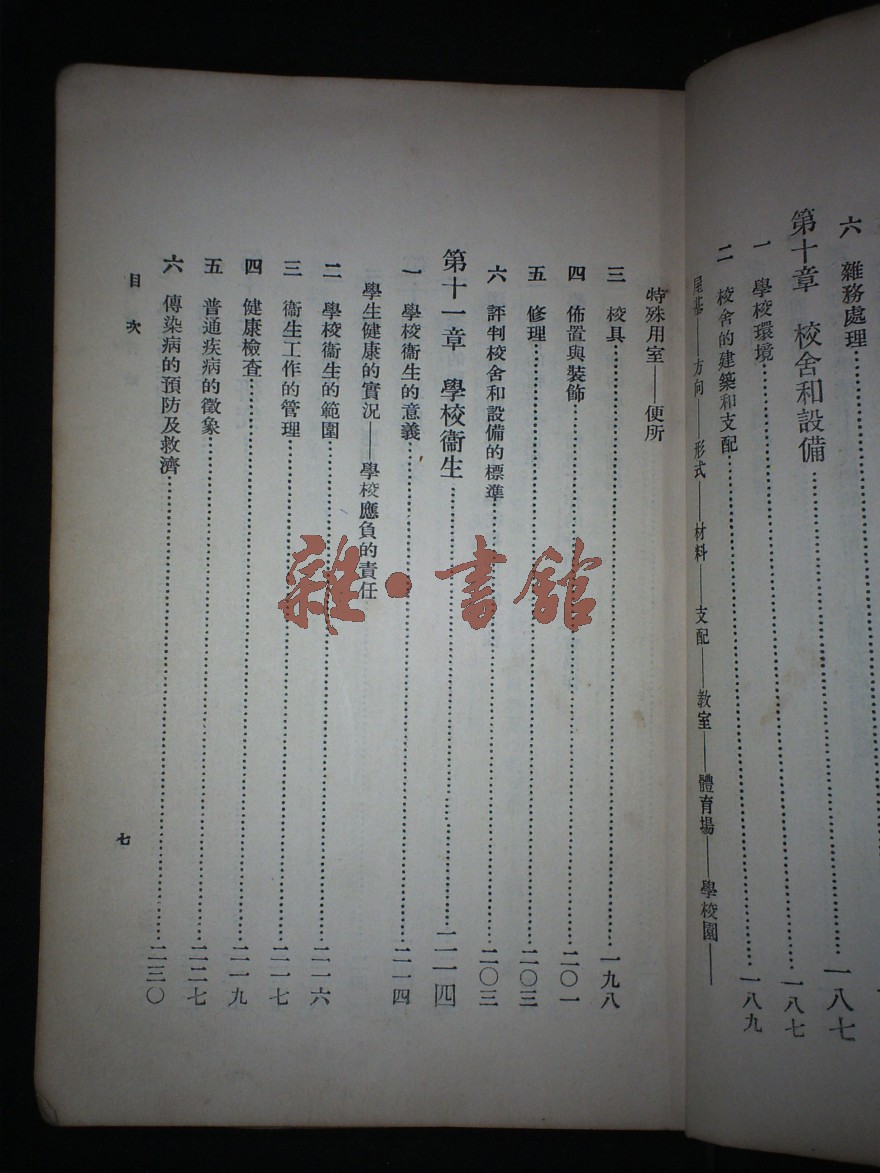 六　雜務處理
第十章　校舍和設備……一八七
一　學校環境……一八七
二　校舍的建築和支配……一八九
屋基——方向——形式——材料——支配——教室——體育場——學校園——
特殊用室——便所
三　校具……一九八
四　佈置與裝飾……二〇一
五　修理……二〇三
六　評判校舍和設備的標準……二〇三
第十一章　學校衞生……二一四
一　學校衞生的意義……二一四
學生健康的實況——學校應負的責任
二　學校衞生的範圍……二一六
三　衞生工作的管理……二一七
四　健康檢查……二一九
五　普通疾病的徵象……二二七
六　傳染病的預防及救濟……二三〇
目次
七
雜·書館